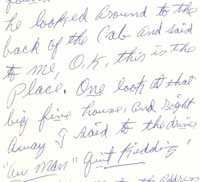 he looked around to the
back of the cab and said
to me, O.K, this is the
place. One look at that
big fine house and right
away I said to the driver
"aw man" quit kidding!
address